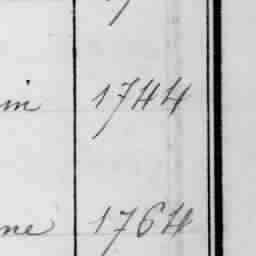 in 1744
ne 1764